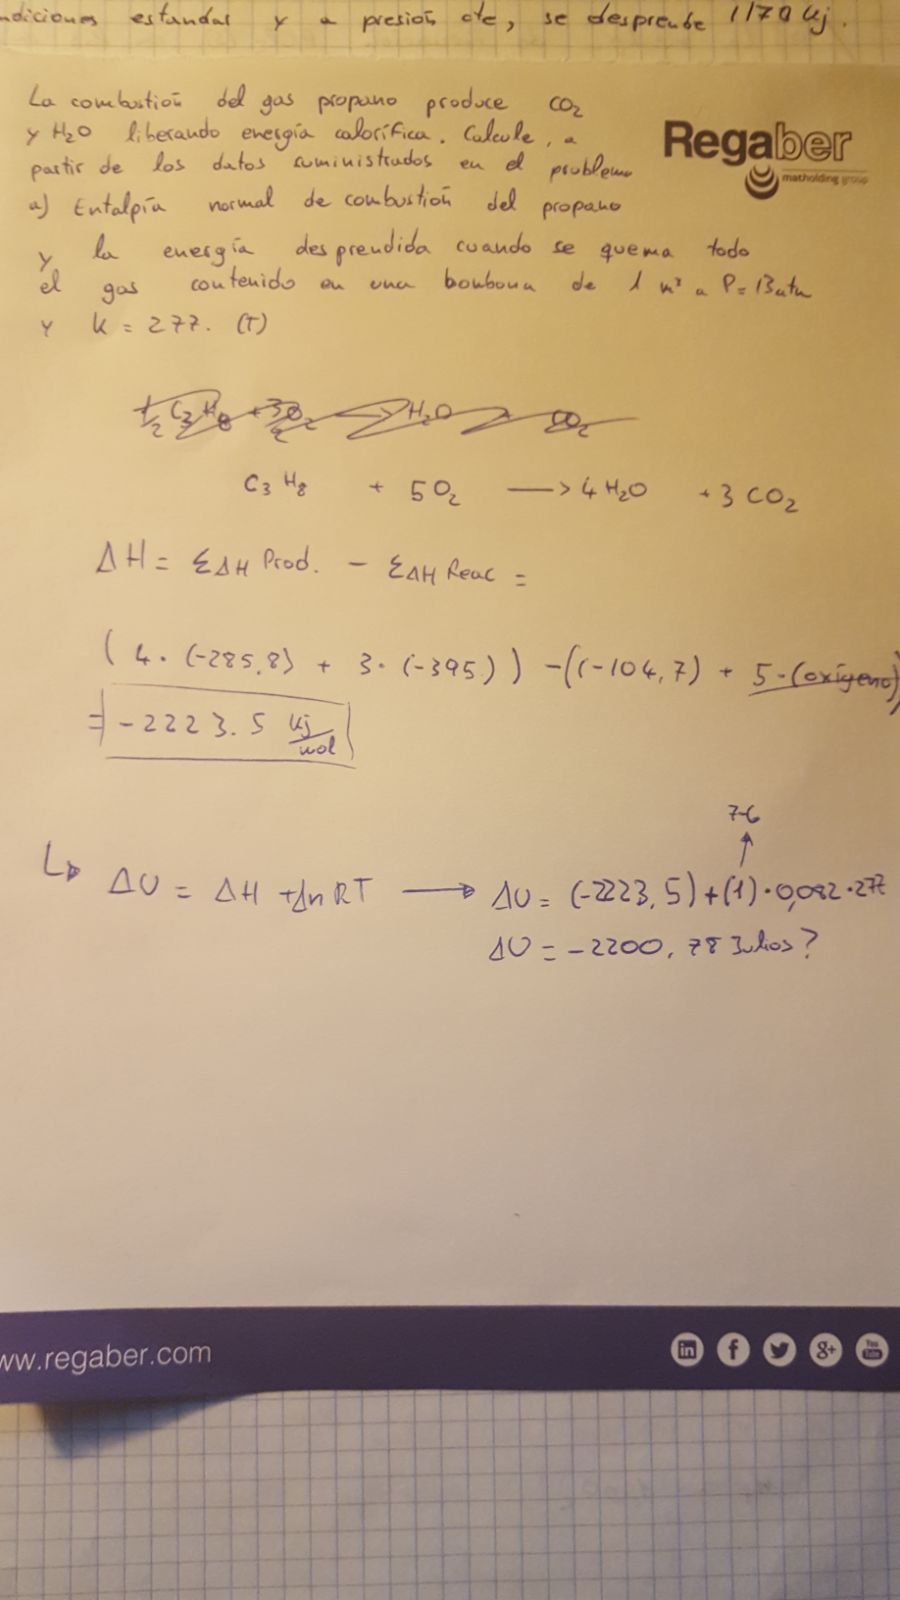 ndiciones estandar y a presión cte, se desprende 1170 kj.
La combustión del gas propano produce CO2
y H2O liberando energía calorífica. Calcule, a
partir de los datos suministrados en el problema
a) Entalpía normal de combustión del propano
y la energía desprendida cuando se quema todo
el gas contenido en una bombona de 1 m³ a P = 13atm
y k = 277. (T)
Regaber
matholding group
C3H8 + 5O2 —> 4H2O + 3CO2
ΔH = ΣΔH Prod. - ΣΔH Reac =
(4·(-285,8) + 3·(-395)) - ((-104,7) + 5·(oxígeno))
= -2223.5 kj/mol
7-6
ΔU = ΔH +ΔnRT —> ΔU = (-2223,5)+(1)·0,082·277
ΔU = -2200,78 Julios?
ww.regaber.com
in f 8+ You Tube